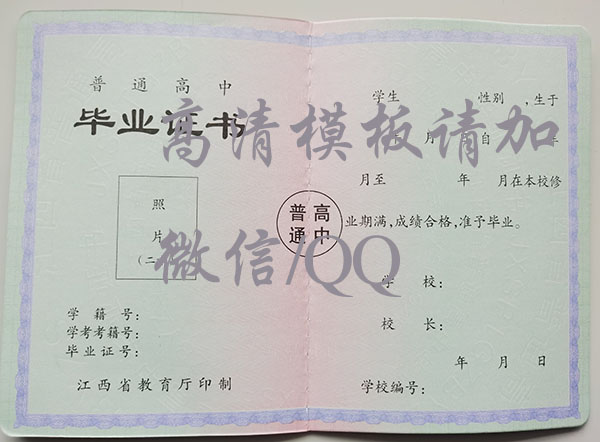 普通高中
毕业证书
照
片
(二
学籍号:
学考考籍号:
毕业证号:
江西省教育厅印制
普高
通中
学生 性别 ,生于
年 月 自 年
月至 年 月在本校修
业期满,成绩合格,准予毕业。
学校:
校长:
年月日
学校编号:
高清模板请加
微信/QQ